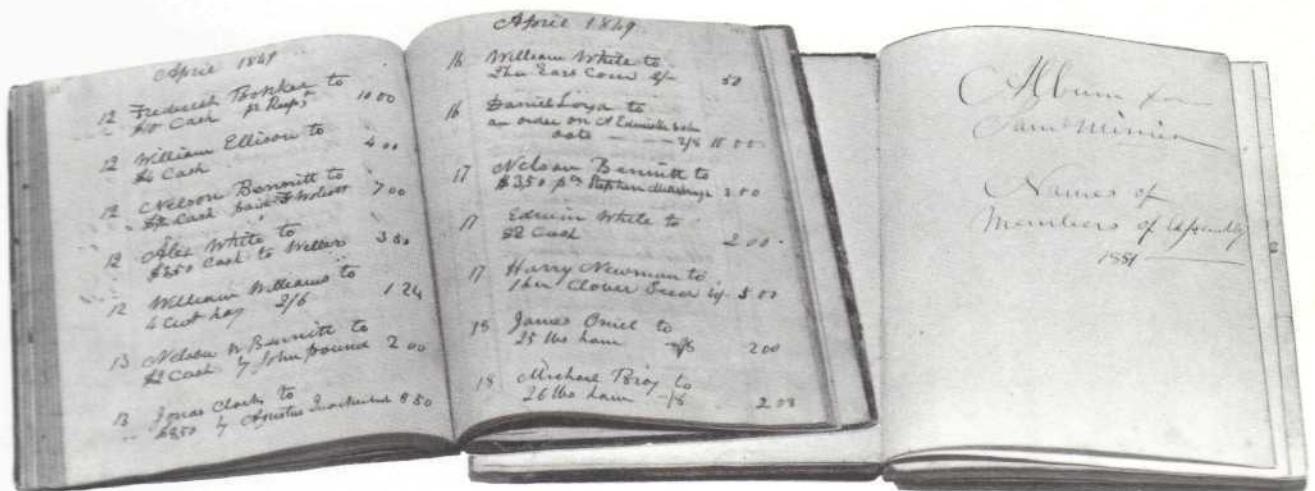 April 1849
12 Frederick to
$10 Cash pr Rect 10 00
12 William Ellison to
$4 Cash 4 00
12 Nelson Bennitt to
$7 Cash paid 7 00
12 Alex White to
$3,50 Cash to Weller 3 50
12 William Williams to
4 cwt hay 2/6 1 24
13 Nelson N Bennitt to
$2 Cash by John pound 2 00
13 Jonas Clark to
" $8,50 by 8 50
April 1849.
16 William White to
Ears Corn 50
16 Daniel to
an order on
oats 2/8 00
17 Nelson Bennitt to
$3,50 pr Stephen 3 00
17 Edwin White to
$2 Cash 2 00
17 Harry Newman to
Clover Seed 5 00
18 James to
25 lbs ham -/8 2 00
18 Michael to
26 lbs ham -/8 2 08
Album for
Saml Minier
Names of
Members of Assembly
1851